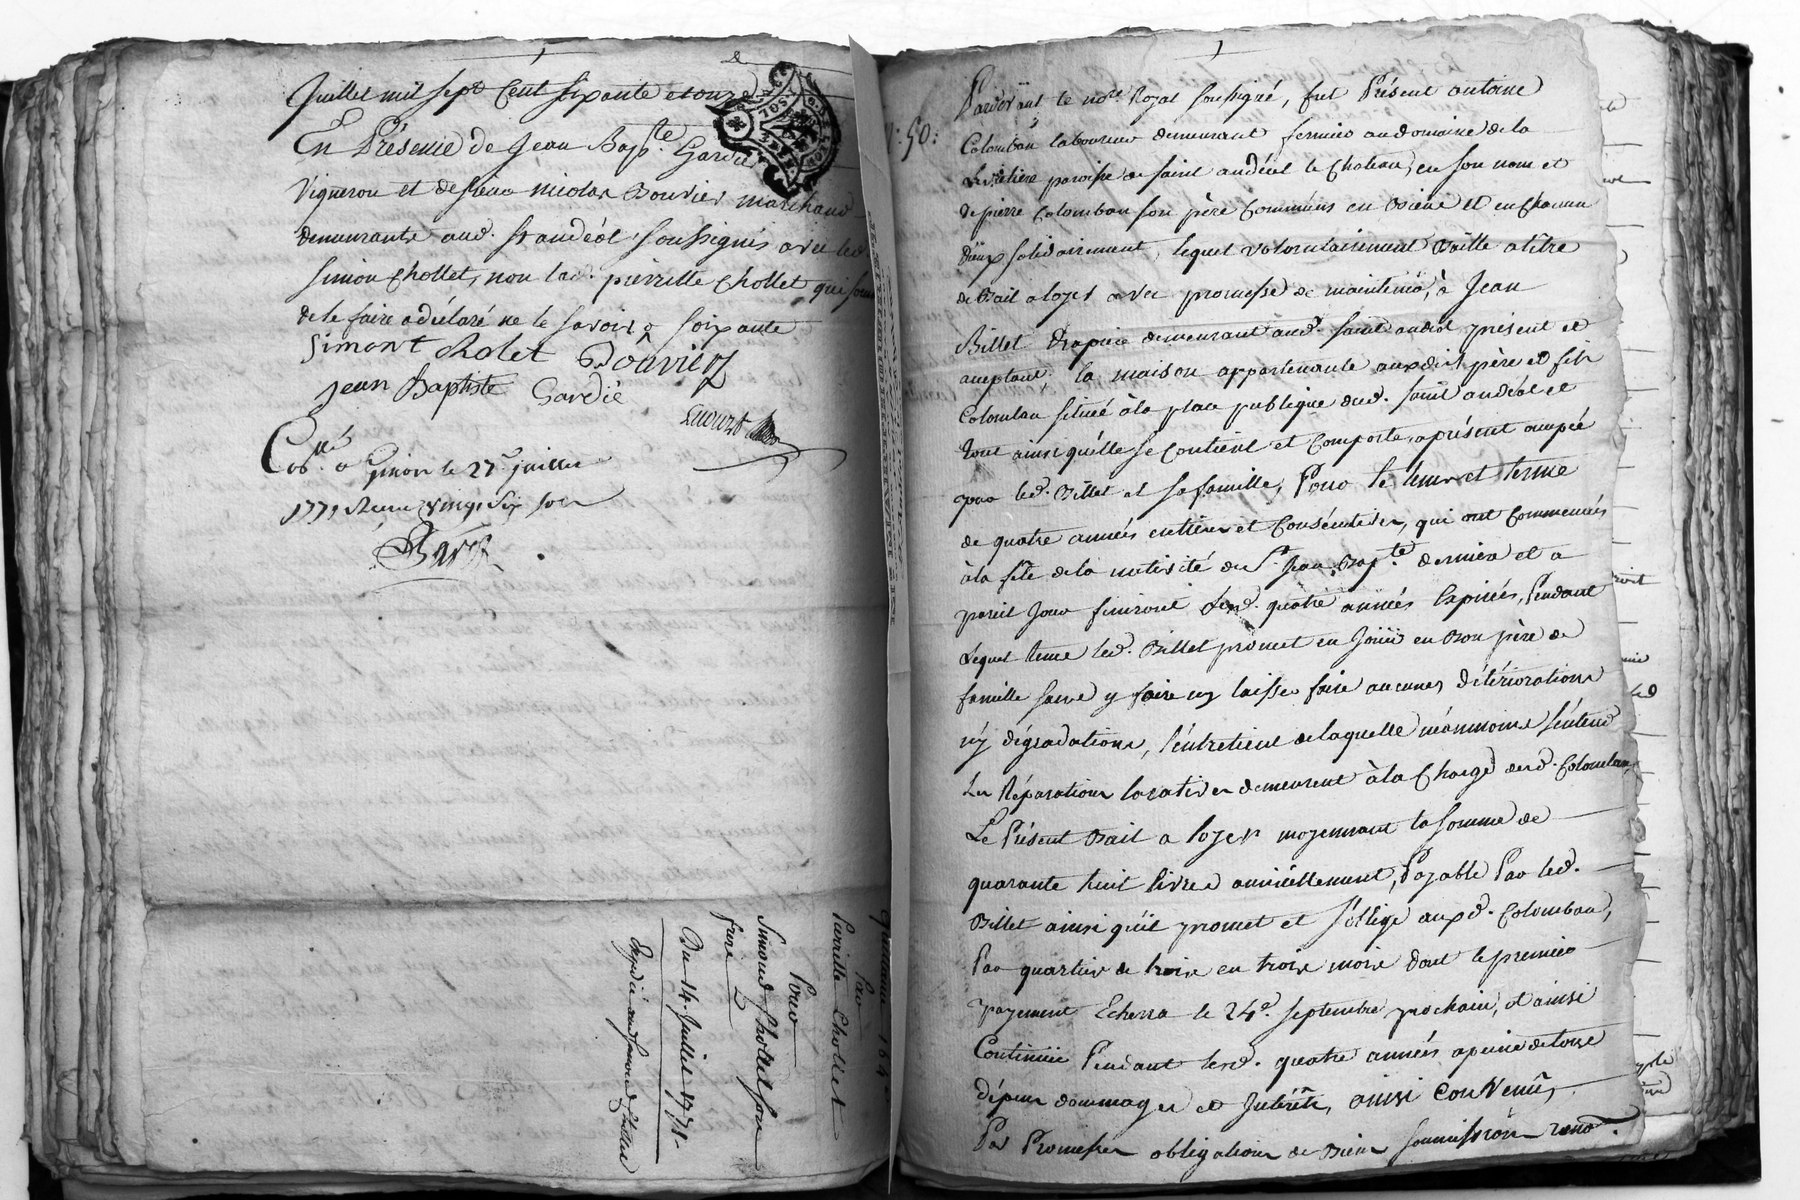 Juillet mil sept Cent soixante et onze
En Présence de Jean Bapte. Gardié
Vigneron et de sieur nicolas Bouvier marchand
demeurants aud. st andéol soussignés avec led.
Simon Chollet, non lad. pierrette Chollet que
de le faire a déclaré ne le savoir soixante
Simont Cholet Bouvier
Jean Baptiste Gardié
Collé a le 27 juillet
1771 Reçu vingt six sols
Pierrette Chollet
Pour
Simond Chollet son
frère
Du 14 Juillet 1771
N: 50:
Pardevant le nore. Royal soussigné, fut Présent antoine
Colomban laboureur demeurant fermier au domaine de la
paroisse de saint andéol le Chateau, en son nom et
de pierre Colomban son père Communs en Biens et en Chacun
d'eux solidairement, lequel volontairement Baille a titre
de Bail a loyer avec promesse de maintenir, à Jean
Billet demeurant aud. saint andéol présent et
acceptant, la maison appartenante auxdits père et fils
Colomban située à la place publique dud. saint andéol et
tout ainsi qu'elle se Contient et Comporte, aprésent occupée
par led. Billet et sa famille, Pour le tems et terme
de quatre années entières et Consécutives, qui ont Commencées
à la fête de la nativité de St. Jean Bapte. dernier et a
pareil Jour finiront lesd. quatre années Expirées, Pendant
Lequel terme led. Billet promet en Joüir en Bon père de
famille sans y faire ny laisser faire aucunes détériorations
ny dégradations, l'entretient de laquelle néanmoins s'entend
Les Réparations locatives demeurent à la Charge desd. Colomban,
Le Présent Bail a loyer moyennant la somme de
quarante huit livres annuellement, Payable Par led.
Billet ainsi qu'il promet et s'oblige auxd. Colomban,
Par quartier de trois en trois mois dont le premier
payement Echerra le 24e. septembre prochain, et ainsi
Continüer Pendant lesd. quatre années a peine de tous
dépens dommages et Intérêts, ainsi Convenû,
Par Promesses obligations de Biens soumissions renon.